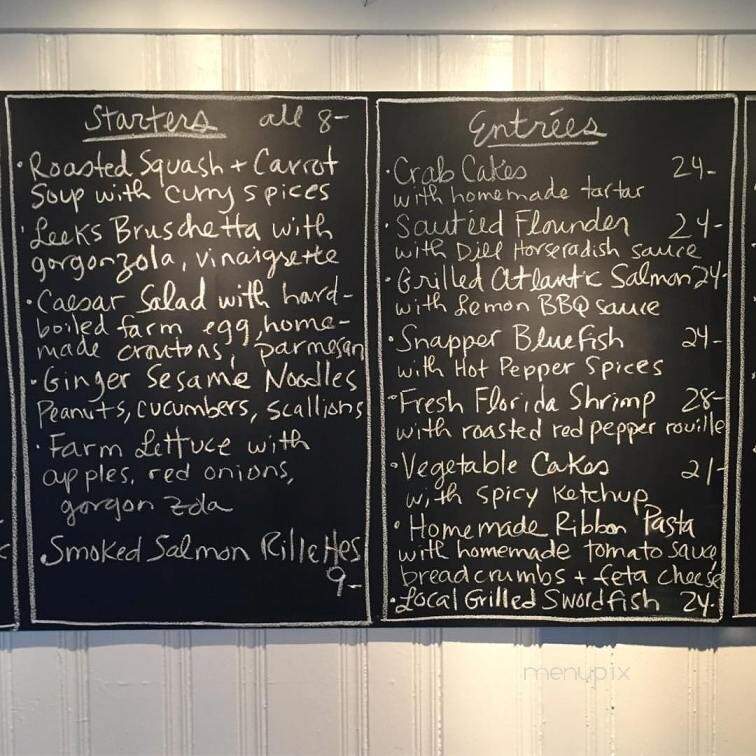 Starters all 8-
• Roasted Squash + Carrot
Soup with curry spices
• Leeks Bruschetta with
gorgonzola, vinaigrette
• Caesar Salad with hard-
boiled farm egg, home-
made croutons, parmesan
• Ginger Sesame Noodles
Peanuts, cucumbers, scallions
• Farm Lettuce with
apples, red onions,
gorgonzola
• Smoked Salmon Rillettes
9-
Entrées
• Crab Cakes 24-
with homemade tartar
• Sautéed Flounder 24-
with Dill Horseradish sauce
• Grilled Atlantic Salmon 24-
with Lemon BBQ sauce
• Snapper Bluefish 24-
with Hot Pepper Spices
• Fresh Florida Shrimp 28-
with roasted red pepper rouille
• Vegetable Cakes 21-
with spicy Ketchup
• Homemade Ribbon Pasta
with homemade tomato sauce
breadcrumbs + feta cheese
• Local Grilled Swordfish 24-
menupix